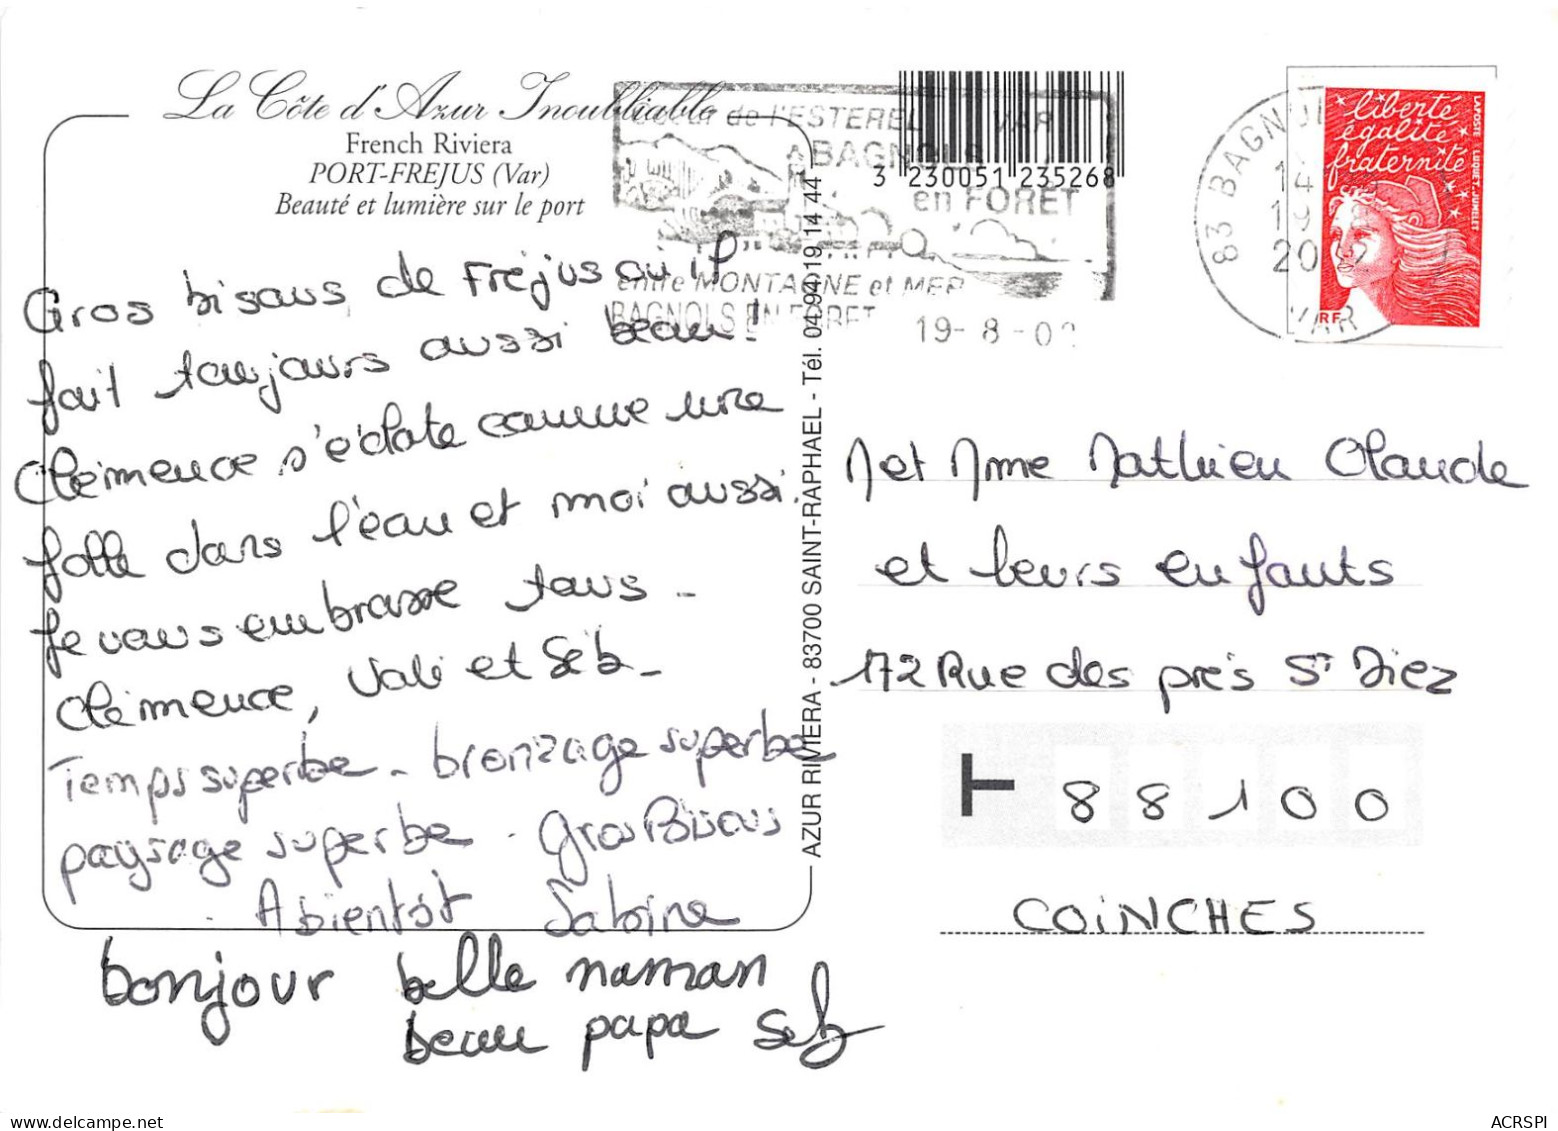 La Côte d'Azur Inoubliable
French Riviera
PORT-FREJUS (Var)
Beauté et lumière sur le port
Gros bisous de Fréjus où il
fait toujours aussi beau!
Clémence s'éclate comme une
folle dans l'eau et moi aussi.
Je vous embrasse tous -
Clémence, Vali et Séb -
Temps superbe - bronzage superbe
paysage superbe - Gros Bisous
A bientôt Sabine
bonjour belle maman
beau papa Seb
AZUR RIVIERA - 83700 SAINT-RAPHAEL - Tél. 04 94 19 14 44
de l'ESTEREL VAR
BAGNOLS
en FORET
entre MONTAGNE et MER
BAGNOLS EN FORET
19-8-02
3 230051 235268
83 BAGNOL
VAR
liberté
égalité
fraternité
RF
LAPOSTE LUQUET JUMELET
M et Mme Mathieu Claude
et leurs enfants
172 Rue des prés St Diez
88100
COINCHES
delcampe.net
ACRSPI